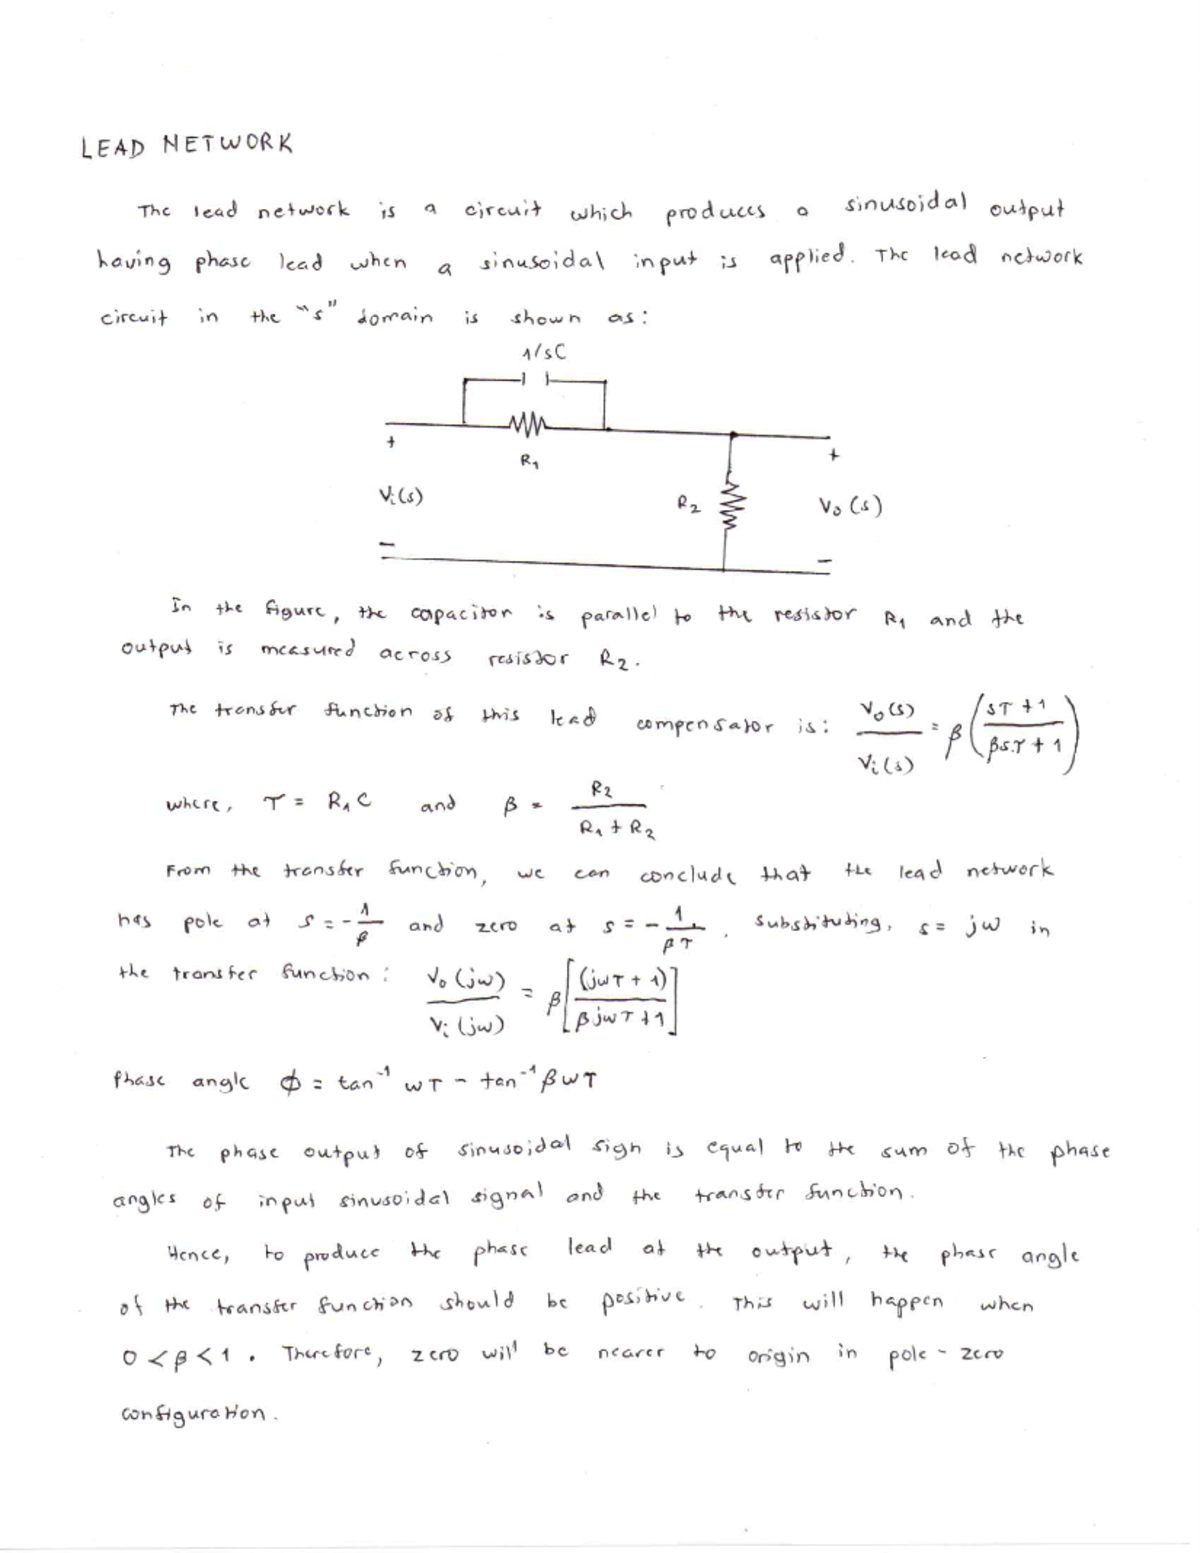 LEAD NETWORK
The lead network is a circuit which produces a sinusoidal output
having phase lead when a sinusoidal input is applied. The lead network
circuit in the "s" domain is shown as:
1/sC
+
R1
+
Vi(s)
R2
Vo(s)
−
−
In the figure, the capacitor is parallel to the resistor R1 and the
output is measured across resistor R2.
The transfer function of this lead compensator is: Vo(s)/Vi(s) = β((sτ+1)/(βsτ+1))
where, τ = R1C and β = R2/(R1+R2)
From the transfer function, we can conclude that the lead network
has pole at s = -1/β and zero at s = -1/βτ. Substituting, s = jω in
the transfer function: Vo(jω)/Vi(jω) = β[(jωτ+1)/(βjωτ+1)]
Phase angle ϕ = tan⁻¹ ωτ - tan⁻¹ βωτ
The phase output of sinusoidal sign is equal to the sum of the phase
angles of input sinusoidal signal and the transfer function.
Hence, to produce the phase lead at the output, the phase angle
of the transfer function should be positive. This will happen when
0<β<1. Therefore, zero will be nearer to origin in pole-zero
configuration.